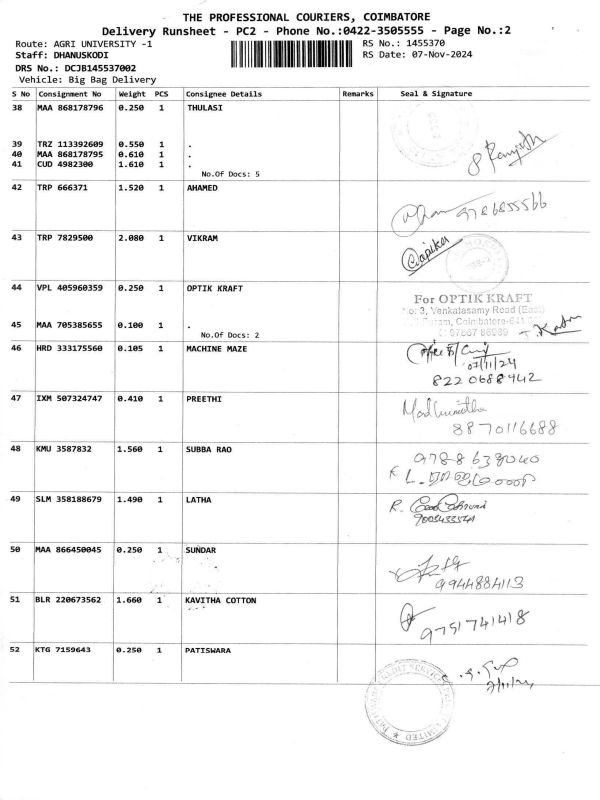 THE PROFESSIONAL COURIERS, COIMBATORE
Delivery Runsheet - PC2 - Phone No.:0422-3505555 - Page No.:2
Route: AGRI UNIVERSITY -1 RS No.: 1455370
Staff: DHANUSKODI RS Date: 07-Nov-2024
DRS No.: DCJB145537002
Vehicle: Big Bag Delivery
S No Consignment No Weight PCS Consignee Details Remarks Seal & Signature
38 MAA 868178796 0.250 1 THULASI
39 TRZ 113392609 0.550 1 .
40 MAA 868178795 0.610 1 .
41 CUD 4982300 1.610 1 .
No.Of Docs: 5
42 TRP 666371 1.520 1 AHAMED
9786855566
43 TRP 7829500 2.080 1 VIKRAM
44 VPL 405960359 0.250 1 OPTIK KRAFT
For OPTIK KRAFT
3, Venkatasamy Road (East)
Coimbatore-641
45 MAA 705385655 0.100 1 .
No.Of Docs: 2
46 HRD 333175560 0.105 1 MACHINE MAZE
07/11/24
8220688942
47 IXM 507324747 0.410 1 PREETHI
Madhumitha
8870116688
48 KMU 3587832 1.560 1 SUBBA RAO
9788639040
49 SLM 358188679 1.490 1 LATHA
R.
50 MAA 866450045 0.250 1 SUNDAR
9944884113
51 BLR 220673562 1.660 1 KAVITHA COTTON
9751741418
52 KTG 7159643 0.250 1 PATISWARA